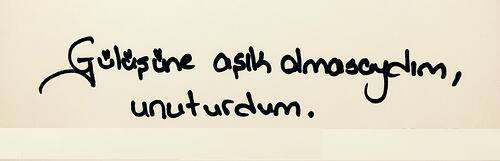 Gülüşüne aşık olmasaydım,
unuturdum.